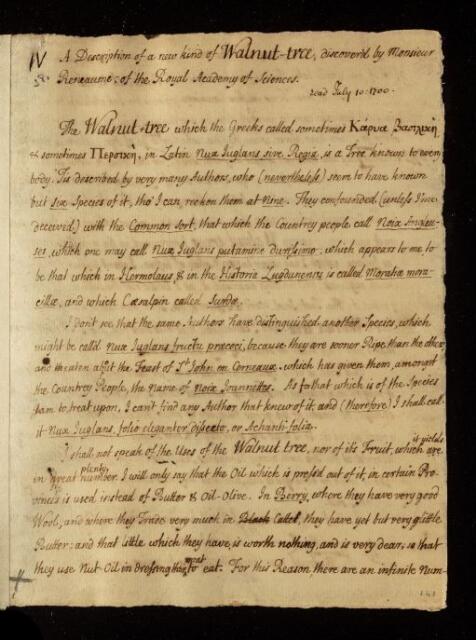 IV A Description of a new kind of Walnut-tree, discover'd by Monsieur
58. Reneaume; of the Royal Academy of Sciences.
read July 10: 1700.
The Walnut-tree which the Greeks called sometimes Κάρυα βασιλικὴ
& sometimes Περσικὴ, in Latin Nux Iuglans sive Regia, is a Tree known to every
body. Tis described by very many Authors, who (nevertheless) seem to have known
but six Species of it, tho' I can reckon them at Nine. They confounded (unless I'me
deceived) with the Common sort, that which the Countrey people call Noix Anguleu-
ses, which one may call Nux Juglans putamine durissimo: which appears to me to
be that which in Hermolaus, & in the Historia Lugdunensis is called Moratiæ mora-
cillæ, and which Cæsalpin called Surda.
I dont see that the same Authors have distinguished another Species, which
might be call'd Nux Iuglans fructu præcoci, because they are sooner Ripe than the other
and theeaten abt the Feast of St. John en Corneaux, which has given them, amongst
the Countrey People, the Name of Noix Jeannettes. As to that which is of the Species
I am to treat upon, I can't find any Author that knew of it; and (therefore) I shall call
it Nux Iuglans, folio eleganter dissecto, or Achanti-folia.
I shall not speak of the Uses of the Walnut tree, nor of it's Fruit, which are
it yields
in great number. I will only say that the Oil which is press'd out of it, in certain Pro-
plenty
vinces is used instead of Butter & Oil-Olive. In Berry, where they have very good
Wool, and where they Trade very much in Black Cattel, they have yet but very little
Butter: and that little which they have, is worth nothing, and is very dear; so that
they use Nut Oil in dressing they eat. For this Reason there are an infinite Num-
141